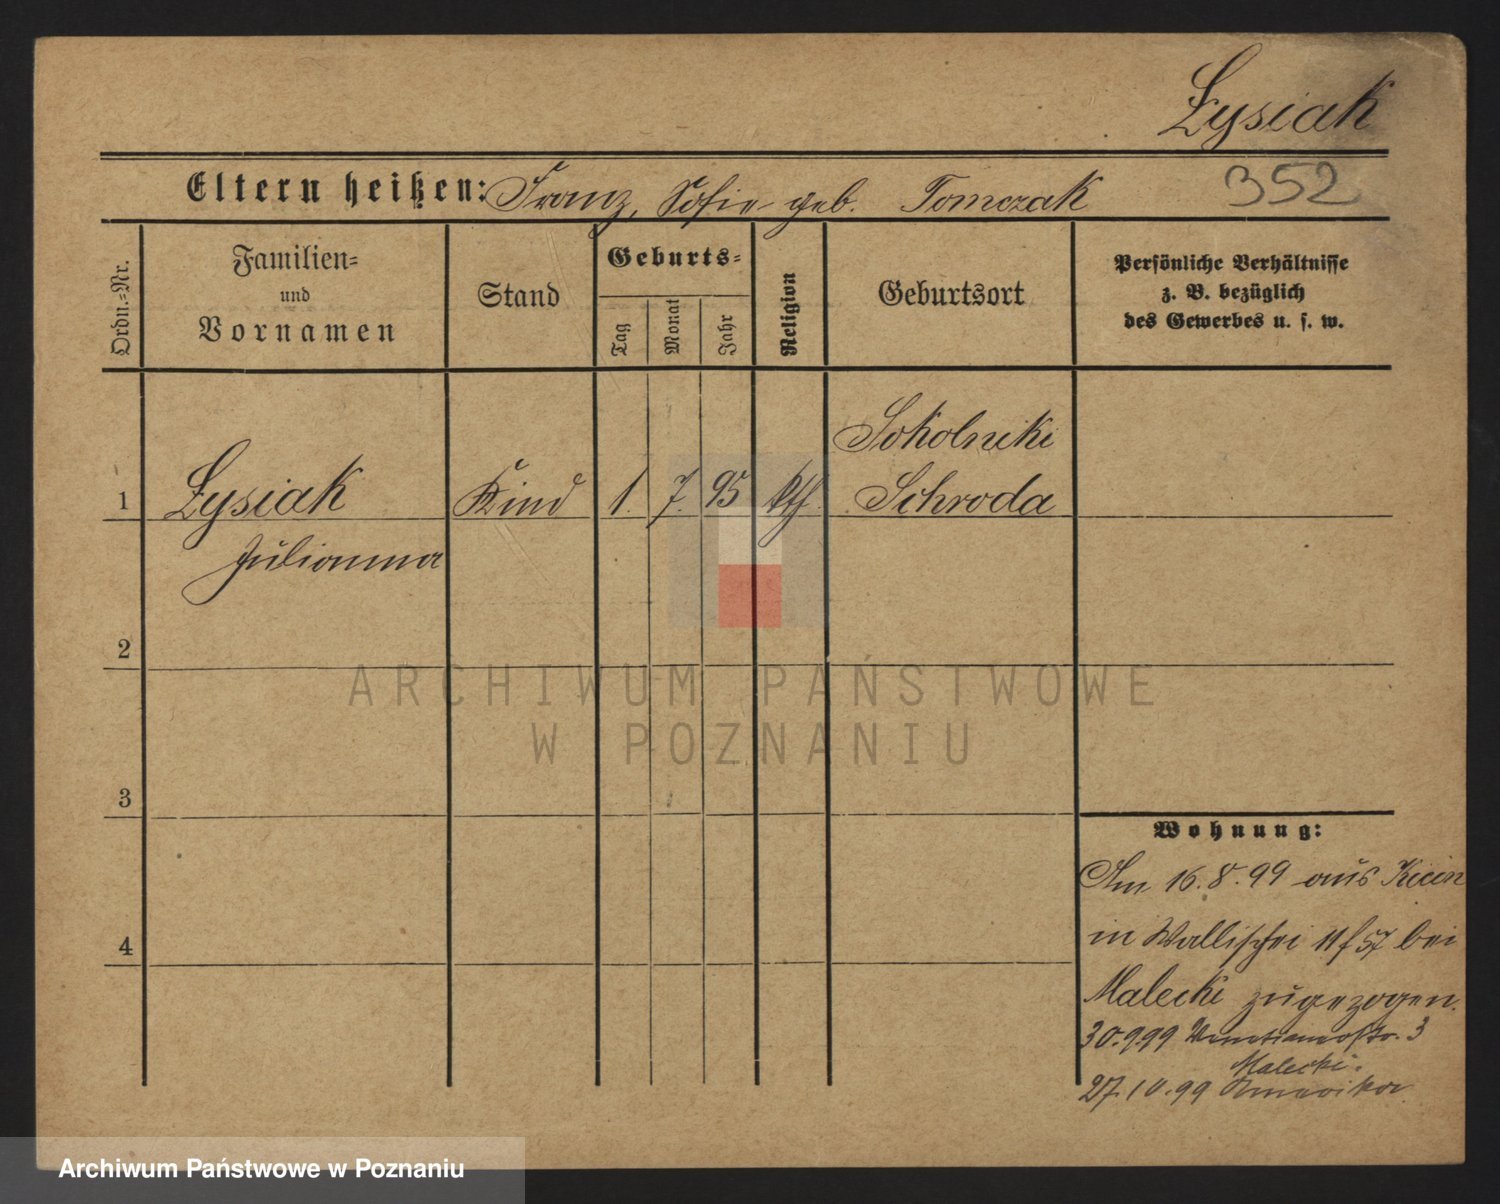 Łysiak
Eltern heißen: Franz, Sofie geb. Tomczak 352
Ordn.-Nr.
Familien-
und
Vornamen
Stand
Geburts-
Tag
Monat
Jahr
Religion
Geburtsort
Persönliche Verhältnisse
z. B. bezüglich
des Gewerbes u. s. w.
Sokolniki
1 Łysiak Kind 1. 7. 95 kth. Schroda
Julianna
2
3
4
ARCHIWUM PAŃSTWOWE
W POZNANIU
Wohnung:
Am 16.8.99 aus Kicin
in Wallischei 11/57 bei
Malecki zugezogen.
30.9.99 Venetianerstr. 3
Malecki.
27.10.99
Archiwum Państwowe w Poznaniu